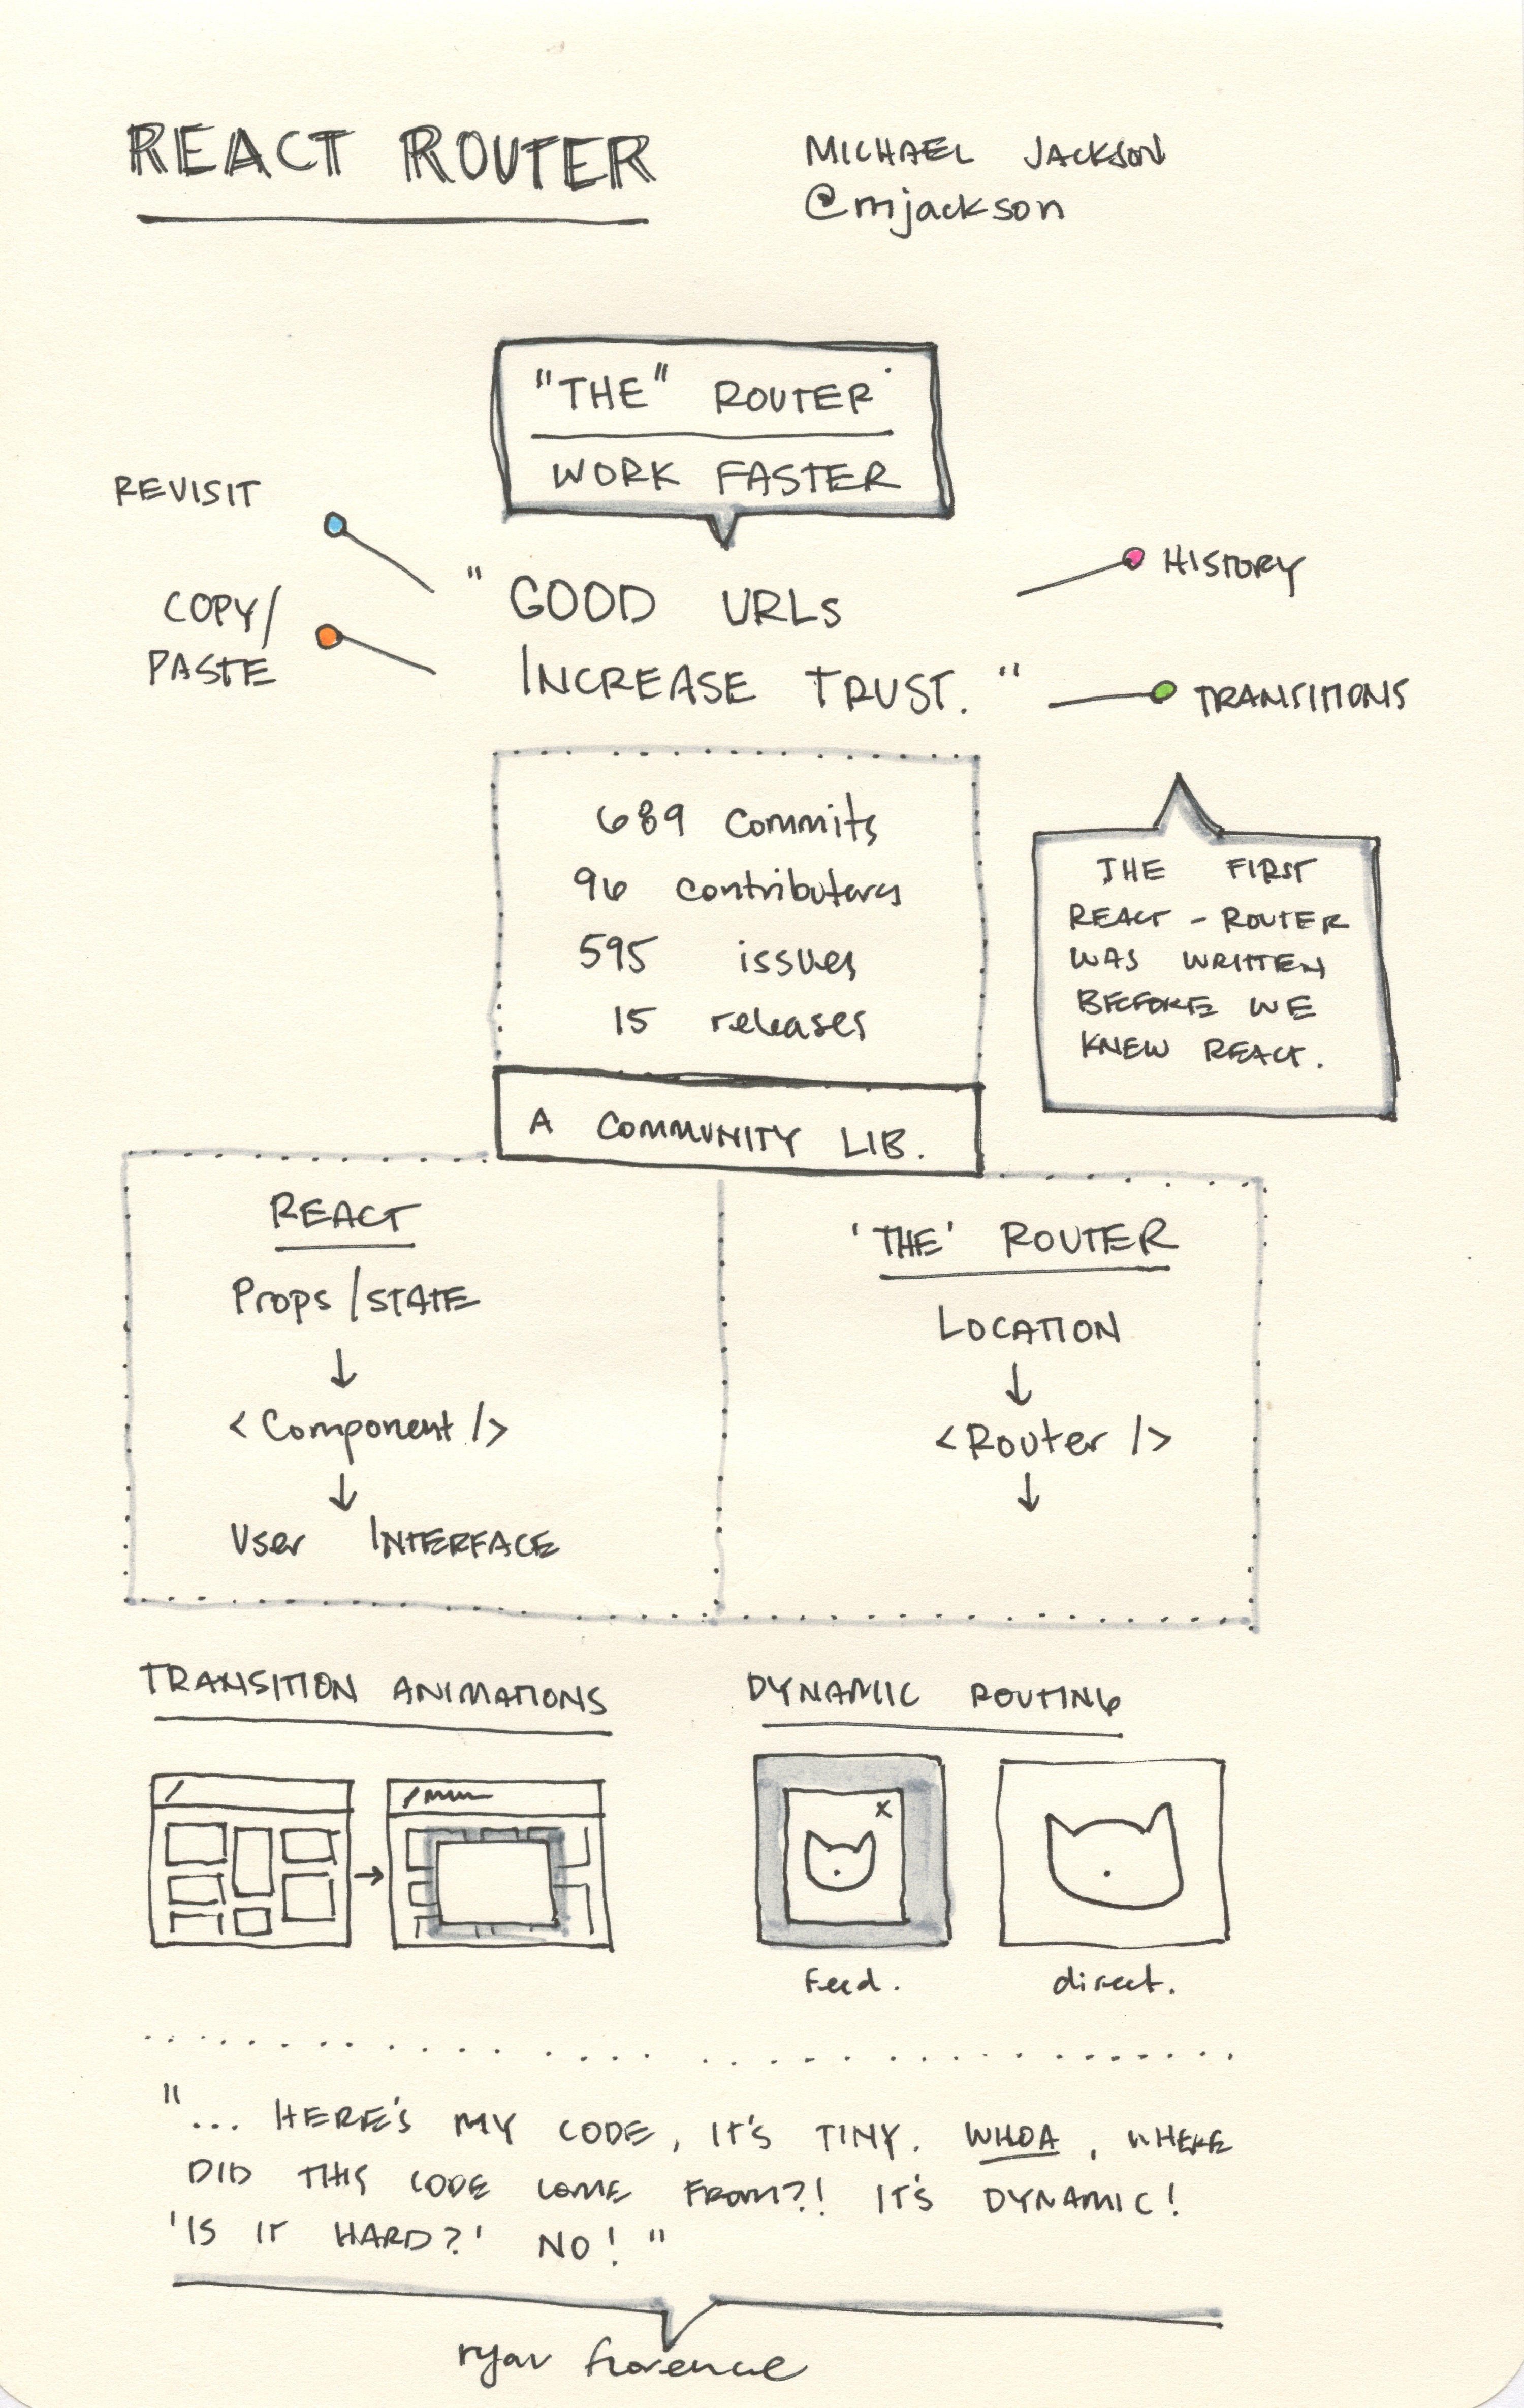 REACT ROUTER
MICHAEL JACKSON
@mjackson
"THE" ROUTER
WORK FASTER
REVISIT
COPY/
PASTE
"GOOD URLs
INCREASE TRUST."
HISTORY
TRANSITIONS
689 Commits
96 contributors
595 issues
15 releases
A COMMUNITY LIB.
THE FIRST
REACT-ROUTER
WAS WRITTEN
BEFORE WE
KNEW REACT.
REACT
Props/STATE
↓
<Component/>
↓
User INTERFACE
'THE' ROUTER
LOCATION
↓
<Router/>
↓
TRANSITION ANIMATIONS
/
→
DYNAMIC ROUTING
x
feed.
direct.
"... HERE'S MY CODE, IT'S TINY. WHOA, WHERE
DID THIS CODE COME FROM?! IT'S DYNAMIC!
'IS IT HARD?' NO!"
ryan florence